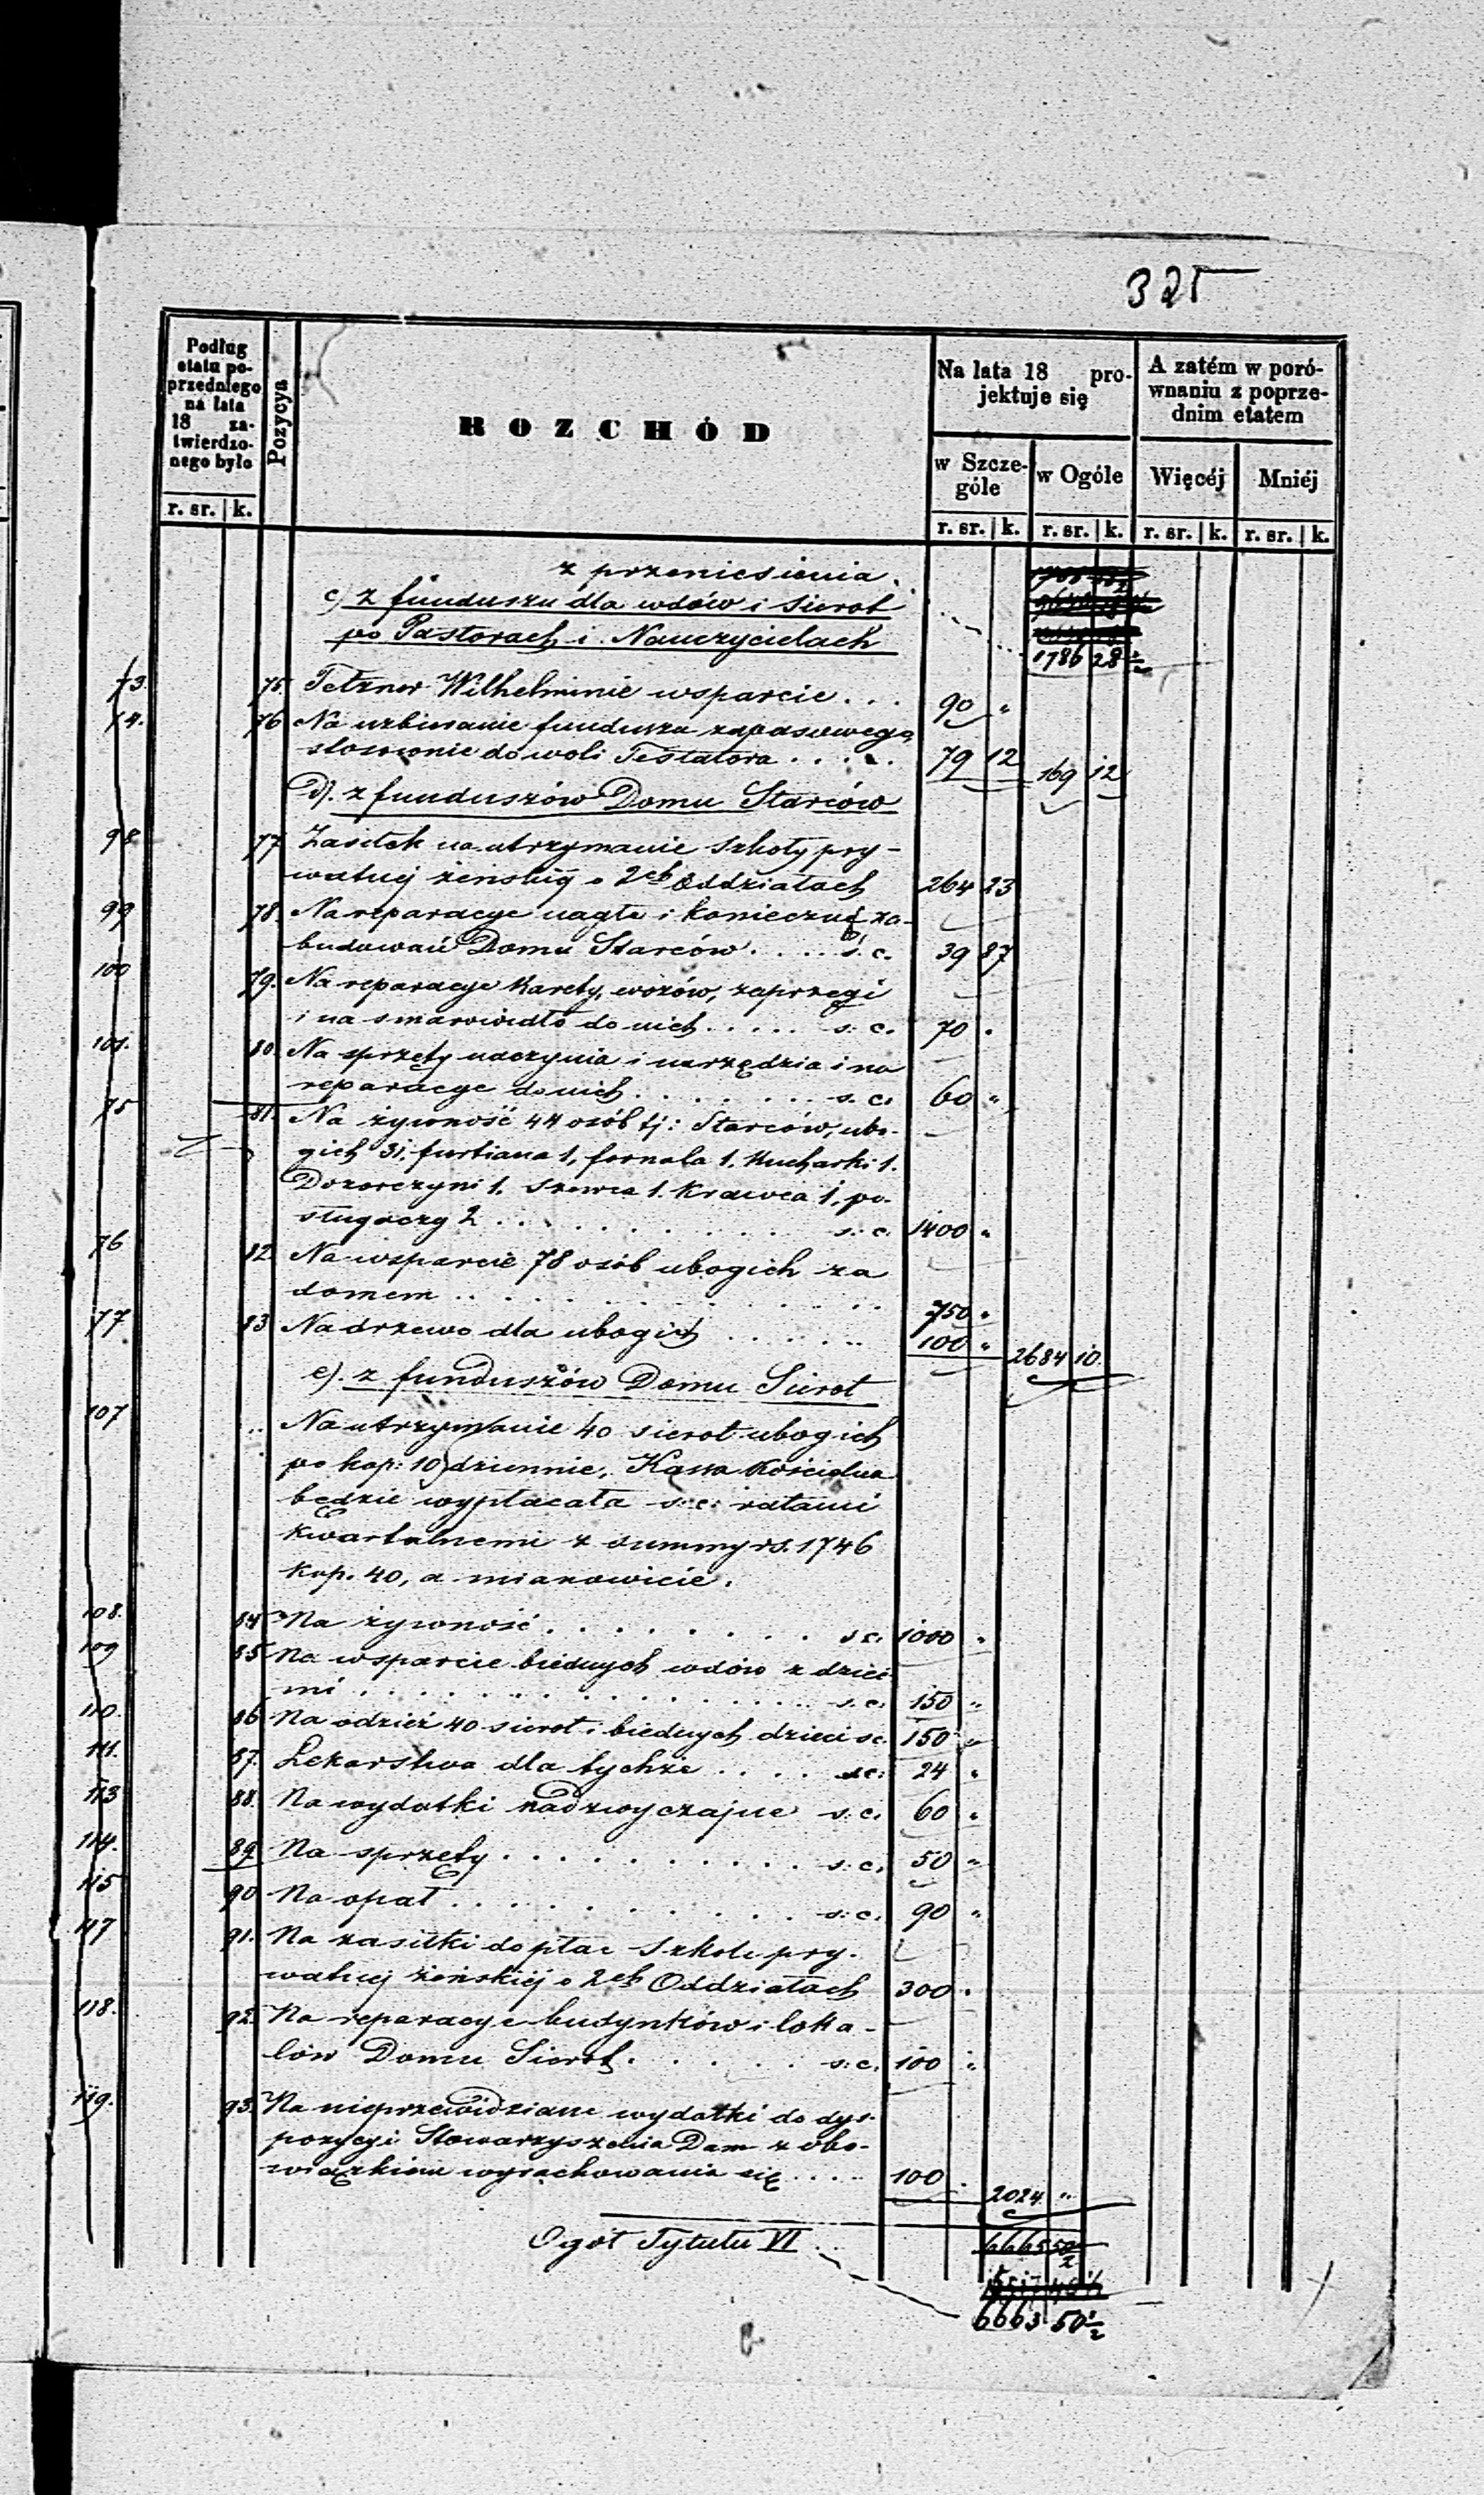 325
Podług
etatu po-
przedniego
na lata
18 za-
twierdzo-
nego było
Pozycya
ROZCHÓD
Na lata 18 pro-
jektuje się
A zatém w poró-
wnaniu z poprze-
dnim etatem
w Szcze-
góle
w Ogóle
Więcéj
Mniéj
r. sr. k.
r. sr. k. r. sr. k. r. sr. k. r. sr. k.
z przeniesienia
c) z funduszu dla wdów i sierot
po Pastorach i Nauczycielach
1786 28 1/2
73. 75. Tetzner Wilhelminie wsparcie . . . 90 "
74. 76 Na uzbieranie funduszu zapasowego
stosownie do woli Testatora . . . . . 79 12 169 12
D). z funduszów Domu Starców
98 77 Zasiłek na utrzymanie szkoły pry-
watnej żeńskiéj o 2ch Oddziałach 264 23
99 78. Na reparacye nagłe i konieczne za-
budowań Domu Starców . . . . s. c. 39 87
100 79. Na reparacye Karety, wozów, zaprzęgi
i na smarowidło do nich . . . . . s: c. 70 "
101. 80. Na sprzęty naczynia i narzędzia i na
reparacye do nich . . . . . . . s. c. 60 "
75 81. Na żywność 44 osób tj: Starców, ubo-
gich 31. furtiana 1, fornala 1. Kucharki 1.
Dozorczyni 1. szewca 1. Krawca 1, po-
sługaczy 2 . . . . . . . . . s. c. 1400 "
76 82. Na wsparcie 78 osób ubogich za
domem . . . . . . . . . . . 750 "
77 83 Na drzewo dla ubogich . . . . . . 100 " 2684 10.
e). z funduszów Domu Sierot
107 Na utrzymanie 40 sierot ubogich
po kop: 10 dziennie, Kassa Kościelna
będzie wypłacała s: c: ratami
kwartalnemi z summy rs. 1746
kop. 40, a mianowicie.
108. 84 Na żywność . . . . . . . . . s c. 1000 "
109 85 Na wsparcie biednych wdów z dzieć
mi . . . . . . . . . . . . s. c. 150 "
110. 86 Na odzież 40 sierot i biednych dzieci sc. 150 "
111. 87. Lekarstwa dla tychże . . . . sc: 24 "
113 88. Na wydatki nadzwyczajne s: c. 60 "
114. 89. Na sprzęty . . . . . . . . . . s: c, 50 "
115 90. Na opał . . . . . . . . . . s: c. 90 "
117 91. Na zasiłki do płac szkole pry-
watnej żeńskiéj o 2ch Oddziałach 300 "
118. 92. Na reparacye budynków i loka-
lów Domu Sierot . . . . . . s: c. 100 "
119. 93. Na nieprzewidziane wydatki do dys-
pozycyi Stowarzyszenia Dam z obo-
wiązkiem wyrachowania się . . . . 100 . 2024 "
Ogół Tytułu VI . .
6663 50 1/2